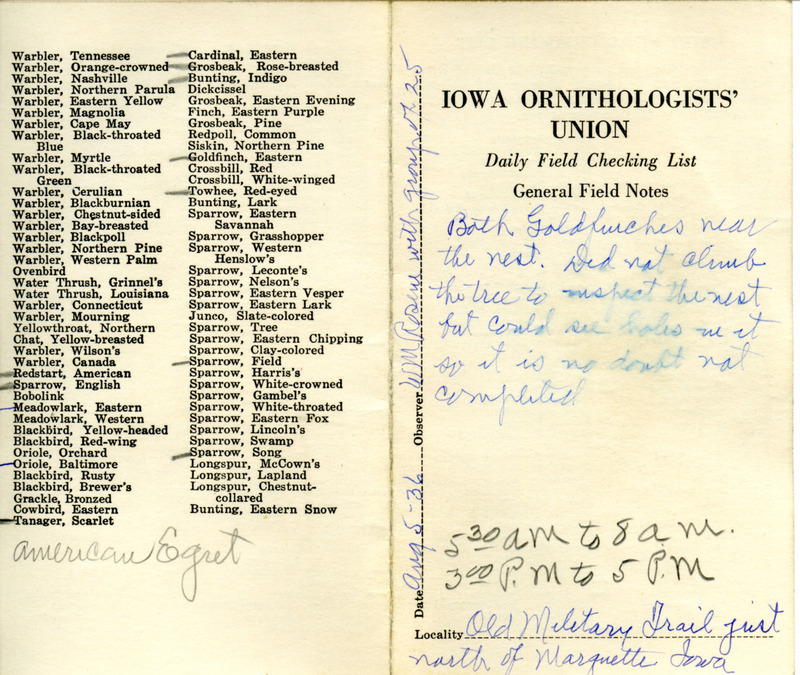 Warbler, Tennessee
Warbler, Orange-crowned
Warbler, Nashville
Warbler, Northern Parula
Warbler, Eastern Yellow
Warbler, Magnolia
Warbler, Cape May
Warbler, Black-throated
Blue
Warbler, Myrtle
Warbler, Black-throated
Green
Warbler, Cerulian
Warbler, Blackburnian
Warbler, Chestnut-sided
Warbler, Bay-breasted
Warbler, Blackpoll
Warbler, Northern Pine
Warbler, Western Palm
Ovenbird
Water Thrush, Grinnel's
Water Thrush, Louisiana
Warbler, Connecticut
Warbler, Mourning
Yellowthroat, Northern
Chat, Yellow-breasted
Warbler, Wilson's
Warbler, Canada
Redstart, American
Sparrow, English
Bobolink
Meadowlark, Eastern
Meadowlark, Western
Blackbird, Yellow-headed
Blackbird, Red-wing
Oriole, Orchard
Oriole, Baltimore
Blackbird, Rusty
Blackbird, Brewer's
Grackle, Bronzed
Cowbird, Eastern
Tanager, Scarlet
American Egret
Cardinal, Eastern
Grosbeak, Rose-breasted
Bunting, Indigo
Dickcissel
Grosbeak, Eastern Evening
Finch, Eastern Purple
Grosbeak, Pine
Redpoll, Common
Siskin, Northern Pine
Goldfinch, Eastern
Crossbill, Red
Crossbill, White-winged
Towhee, Red-eyed
Bunting, Lark
Sparrow, Eastern
Savannah
Sparrow, Grasshopper
Sparrow, Western
Henslow's
Sparrow, Leconte's
Sparrow, Nelson's
Sparrow, Eastern Vesper
Sparrow, Eastern Lark
Junco, Slate-colored
Sparrow, Tree
Sparrow, Eastern Chipping
Sparrow, Clay-colored
Sparrow, Field
Sparrow, Harris's
Sparrow, White-crowned
Sparrow, Gambel's
Sparrow, White-throated
Sparrow, Eastern Fox
Sparrow, Lincoln's
Sparrow, Swamp
Sparrow, Song
Longspur, McCown's
Longspur, Lapland
Longspur, Chestnut-
collared
Bunting, Eastern Snow
Date Aug 5-36 Observer WM Rosene with group of 25
IOWA ORNITHOLOGISTS'
UNION
Daily Field Checking List
General Field Notes
Both Goldfinches near
the nest. Did not climb
the tree to inspect the nest
but could see holes in it
so it is no doubt not
completed
5 30 AM to 8 a m.
3 00 P.M to 5 P.M
Locality Old Military Trail just
north of Marquette Iowa